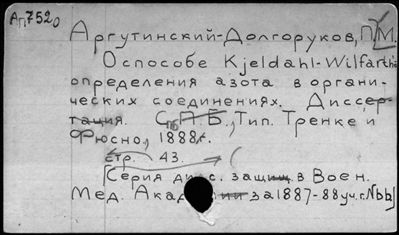 Ап.7520
Аргутинский-Долгоруков, П.М.
О способе Kjeldahl-Wilfarth'а
определения азота в органи-
ческих соединениях. Диссер-
тация. С.П.Б., Тип. Тренке и
Фюсно, 1888 г.
стр. 43.
(Серия дис. защ. в Воен.
Мед. Акад за 1887-88 уч. г. №